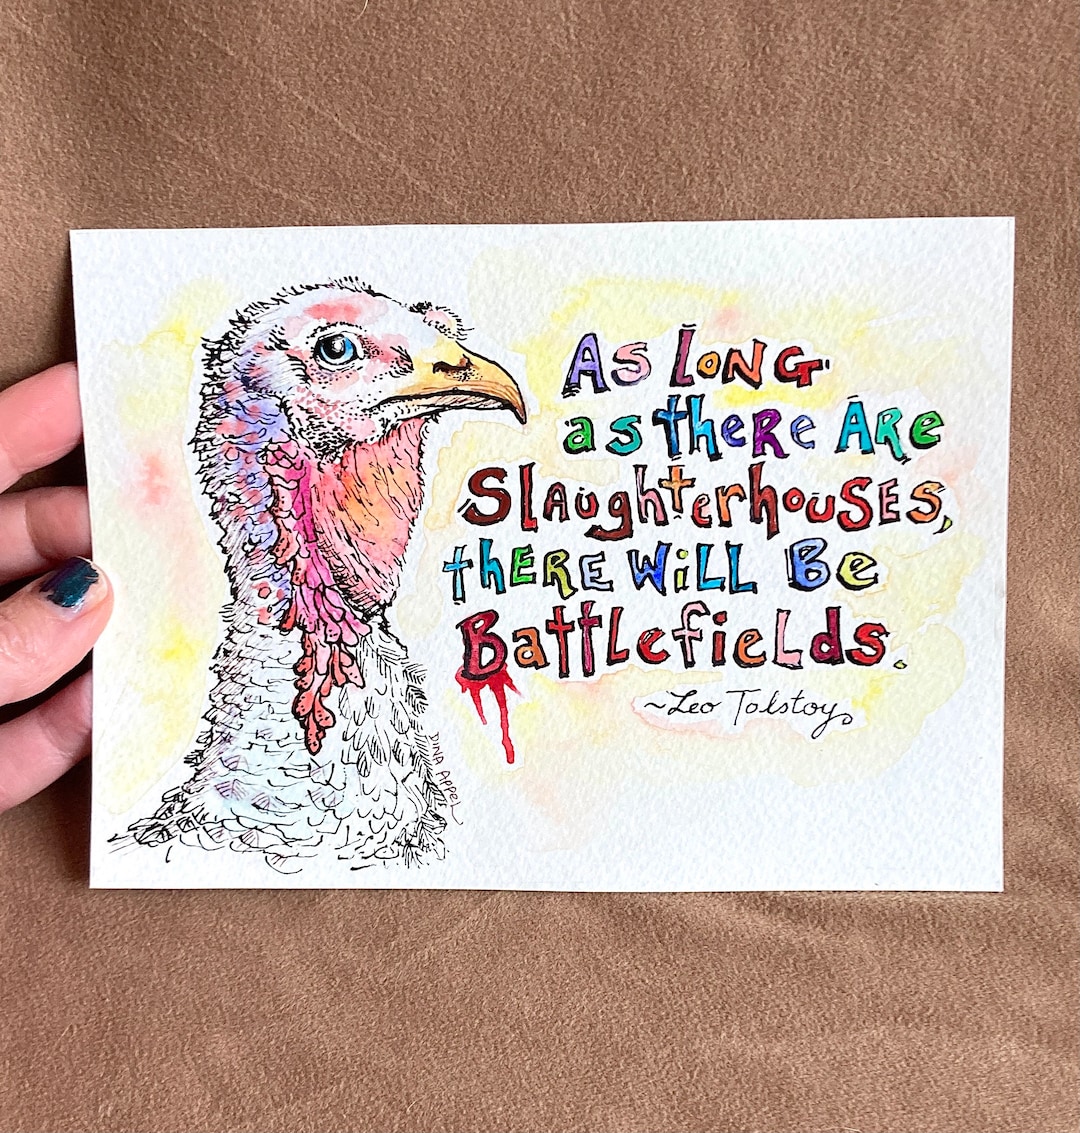 As Long
as there Are
Slaughterhouses,
there Will Be
Battlefields.
~Leo Tolstoy
DNA APPEL